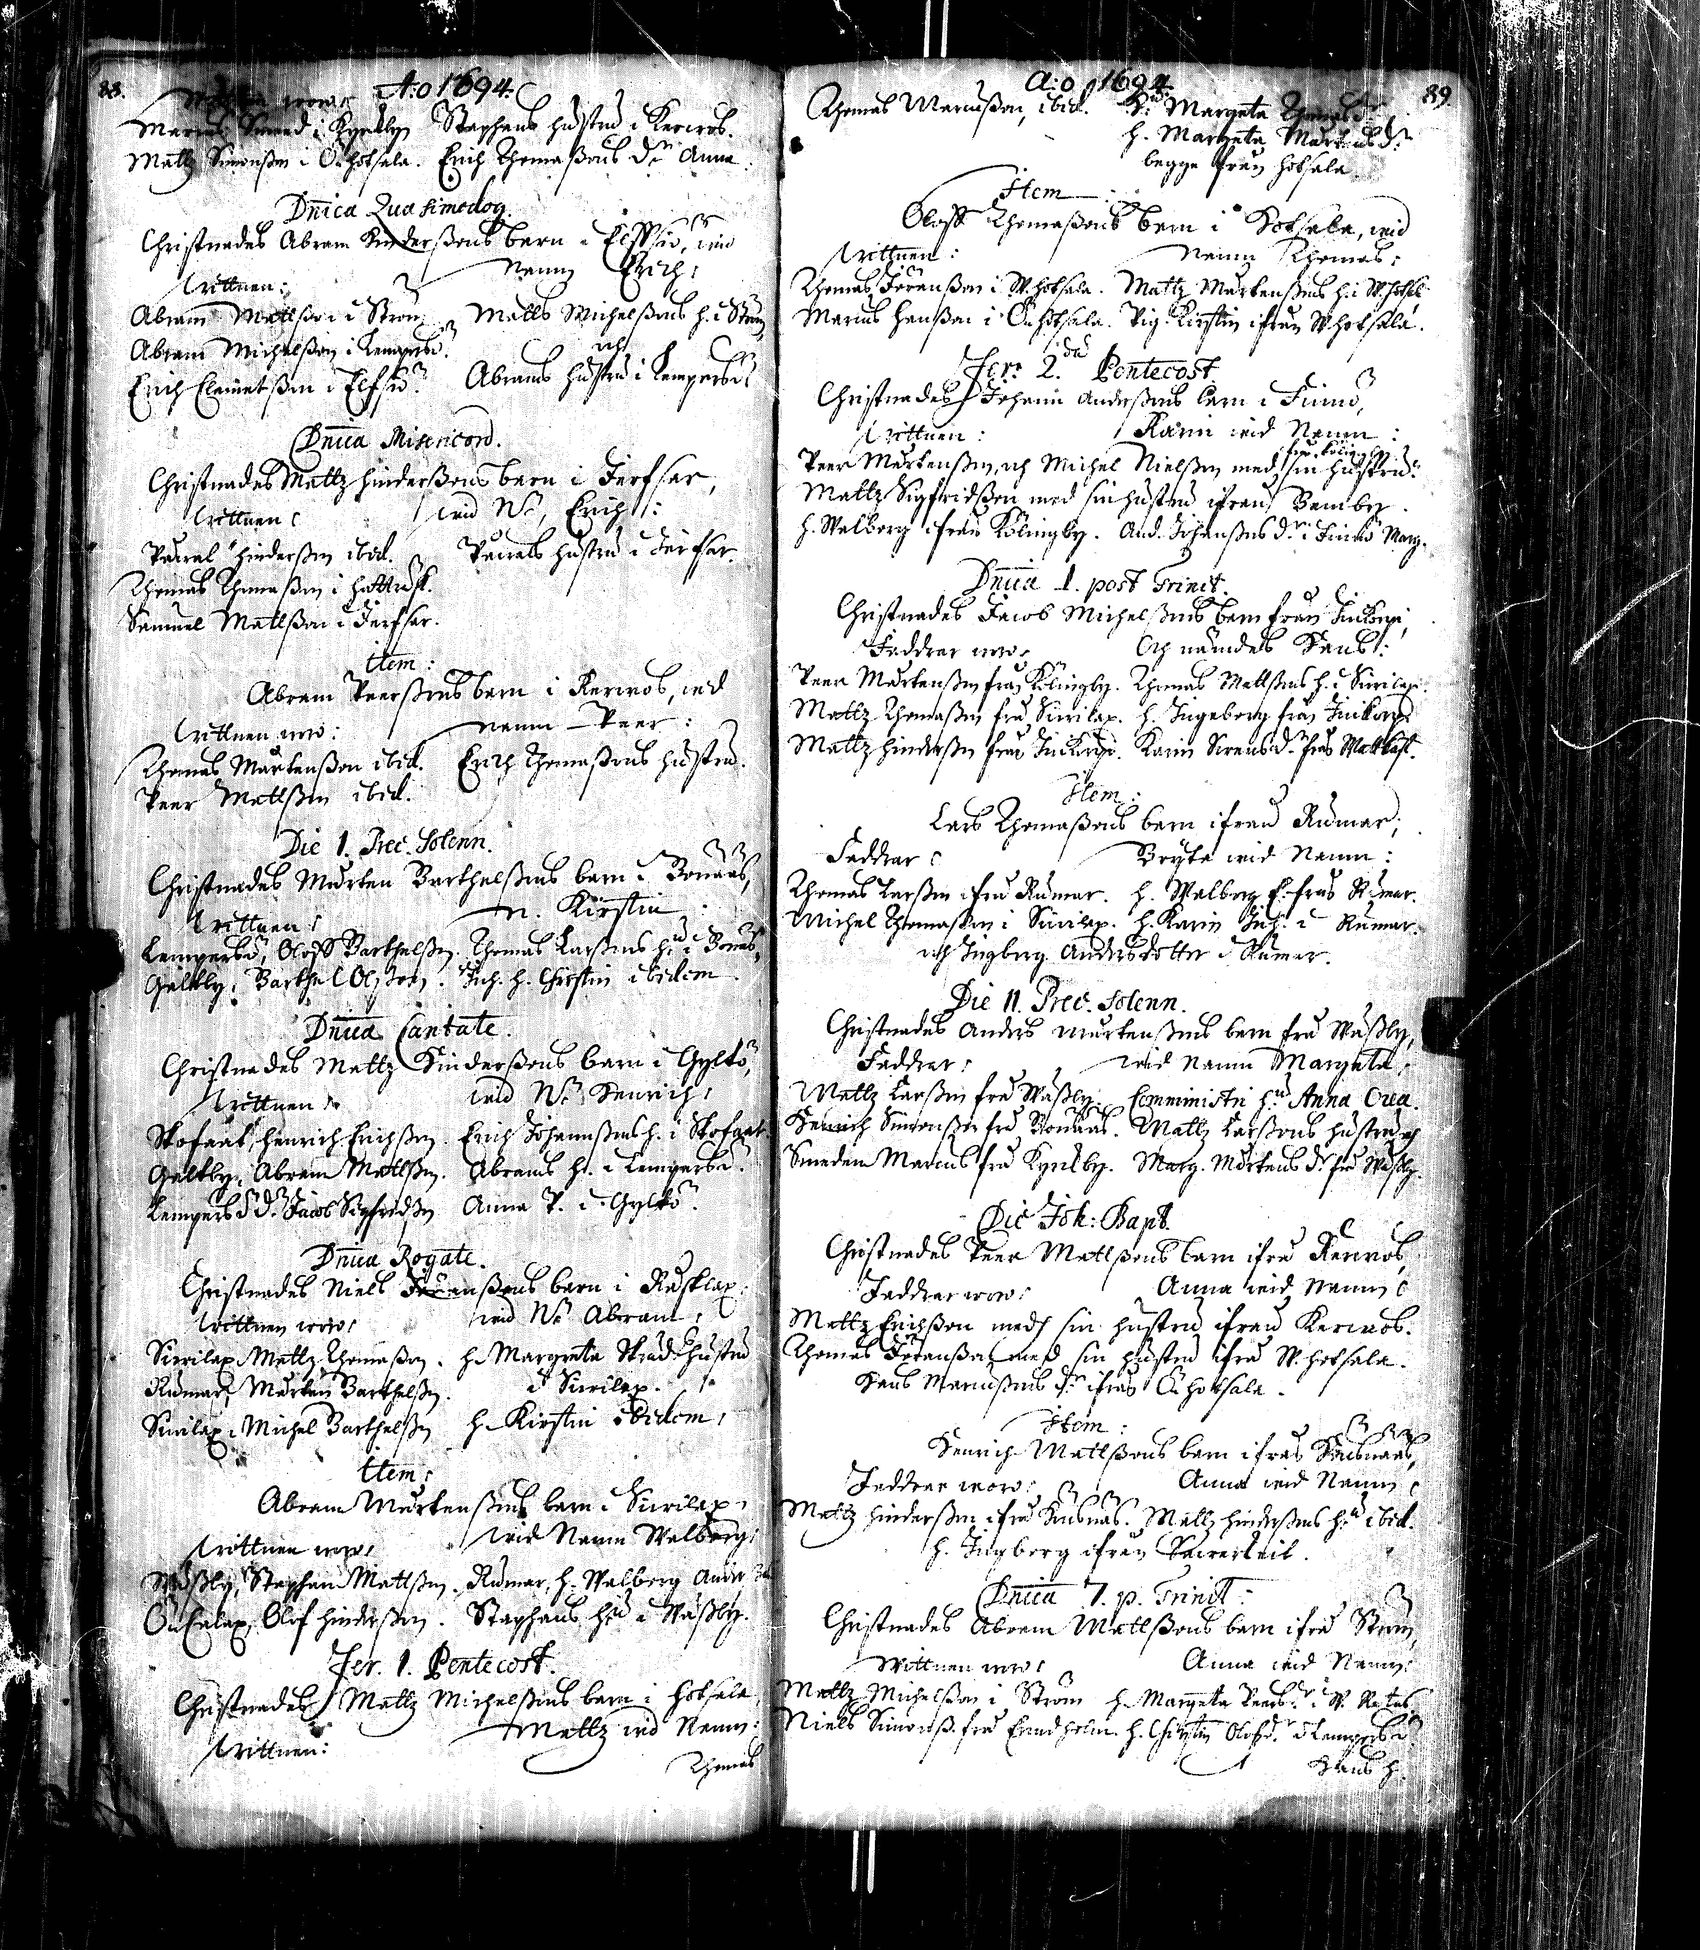 88.
A:o 1694.
Marcus Smed i Kyrkby Staphans hustru i Kerwos.
Mattz Simonßon i Ö. hoksala. Erich Thomaßons dr Anna.
Dnica Quasimodog.
Christnades Abram Hinderßons barn i Elfsiö, wid
namn Erich:
Wittnen:
Abram Mattßon i Ström Matts Michelßons h. i Ström,
Abram Michelßon i Kempersö. och
Erich Clemetßon i Elfsiö Abrams hustru i Kempersö
Dnica Misericord.
Christnades Mattz Hinderßons barn i Jerfsar,
Wittnen: wid N. Erich:
Pawal Hinderßon ibid. Pawals hustru i Jerfsar.
Thomas Thomaßon i
Samuel Mattßon i Jerfsar.
Item:
Abram Peerßons barn i Kerwos, wid
Wittnen wow: namn Peer:
Thomas Mårtenßon ibid. Erich Thomaßons hustru.
Peer Mattßon ibid.
Die 1. Prec. Solenn.
Christnades Mårten Barthelßons barn i Bonäs,
Wittnen: n. Kirstin
Kempersö, Oloff Barthelßon. Thomas Larßons hu i Bonäs,
Galtby, Barthel Olsson. Inh. h. Christin ibidem.
Dnica Cantate.
Christnades Mattz Hinderßons barn i Gyltö,
Wittnen: wid N. Henrich:
Skofaat, Henrich Erichßon. Erich Johanßons h. i Skofaat
Galtby, Abram Mattßon. Abrams h. i Kempersö.
Kempersö d. Jacob Sigfridßon Anna P. i Gyltö
Dnica Rogate.
Christnades Niels Jöranßons barn i Rusklax
Wittnen wow: wid N. Abram:
Siwilax Mattz Thomaßon. h. Margreta hustru
Rumar, Mårten Barthelßon. i Siwilax.
Siwilax, Michel Barthelßon h. Kirstin ibidem,
Item:
Abram Mårtenßons barn i Siwilax,
Wittnen wow: wid Namn Walborg:
Wäßby, Staphan Mattßon. Rumar, h. Walborg
Olof Hinderßon. Staphans hu i Wäßby.
Fer. 1. Pentecost.
Christnades Mattz Michelßons barn i hoksala,
Mattz wid Namn:
Wittnen:
Thomas
A:o 1694.
89.
Thomas Marcußon, ibid. H. Margeta Thomasdr
h. Margeta Mårtensdr
begge från hoksala.
Item
Oloff Thomaßons barn i Hoksala, wid
Wittnen: Namn Thomas:
Thomas Jöranßon i W. hoksala. Mattz Mårtenßons h. i W. hoksal
Marcus Hanßon i Ö. hoksala. Pig. Kirstin ifrån W. hoksala.
Fer. 2.da Pentecost
Christnades Johan Anderßons barn i Finnö,
Wittnen: Karin wid Namn:
Peer Mårtenßon, och Michel Nielßon med sin hustru
Mattz Sigfridßon med sin hustru ifrån Benby.
h. Walborg ifrån Kölingby. And. Johanßons dr i Finnö Marg.
Dnica 1. post Trinit.
Christnades Jacob Michelßons barn från Finkorpi,
Faddrar wow: Och nämdes Hans:
Peer Mårtenßon från Kölingby. Thomas Mattßons h. i Siwilax.
Mattz Thomaßon frå Siwilax. h. Ingeborg från Finkorpi
Mattz Hinderßon från Finkorpi. Karin dr från
Item:
Lars Thomaßons barn ifrån Rumar;
Faddrar: Bryta wid Namn:
Thomas Larßon ifrå Rumar. h. Walborg E. från Rumar.
Michel Thomaßon i Siwilax. h. Karin Inh. i Rumar.
och Ingberg Andersdotter i Rumar.
Die 11. Prec. Solenn.
Christnades Anders Mårtenßons barn frå Wäßby,
Faddrar: wid Namn Margeta:
Mattz Larßon frå Wäßby. Comministri hu Anna Crea.
Henrich Simonßon frå Bonäs. Mattz Larßons hustru och
Smeden Marcus frå Kyrkby. Marg. Mårtens dr frå Wäßby.
Die Joh: Bapt.
Christnades Peer Mattßons barn ifrå Kerwos,
Faddrar wow: Anna wid Namn:
Mattz Erichßon med sin hustru ifrån Kerwos.
Thomas Jöranßon med sin hustru ifrå W. hoksala.
Hans Marcußons dr ifrån Ö. hoksala.
Item:
Henrich Mattßons barn ifrån
Faddrar wow: Anna wid Namn:
Mattz Hinderßon ifrå Mattz Hinderßons hu ibid.
h. Ingberg ifrån
Dnica 7. p. Trinit:
Christnades Abram Mattßons barn ifrå Ström,
Wittnen wow: Anna wid Namn:
Mattz Michelßon i Ström h. Margeta Peersdr i W. Retais
Niels Simonß. frå h. Christin Olofsdr i Kempersö
Hans h.